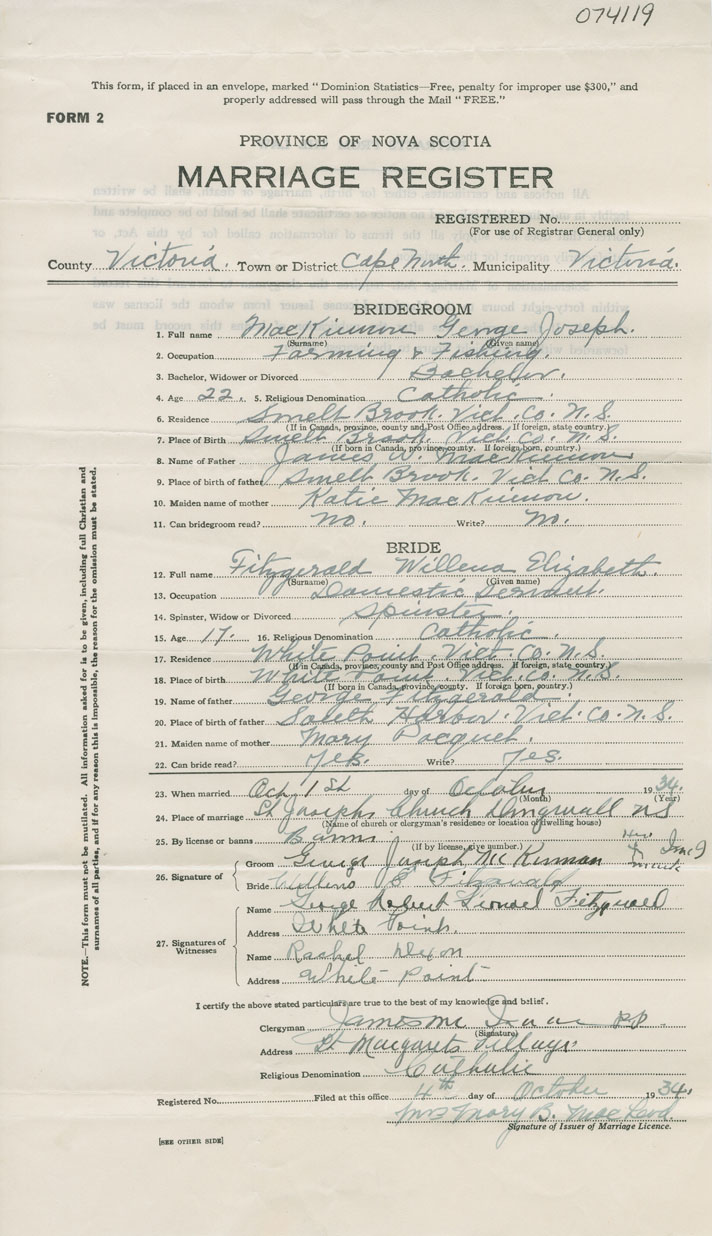 074119
This form, if placed in an envelope, marked "Dominion Statistics—Free, penalty for improper use $300," and
properly addressed will pass through the Mail "FREE."
FORM 2
PROVINCE OF NOVA SCOTIA
MARRIAGE REGISTER
REGISTERED No.
(For use of Registrar General only)
County Victoria. Town or District Cape North. Municipality Victoria.
BRIDEGROOM
1. Full name MacKinnon George Joseph.
(Surname) (Given name)
2. Occupation Farming & Fishing.
3. Bachelor, Widower or Divorced Bachelor.
4. Age 22. 5. Religious Denomination Catholic.
6. Residence Smelt Brook. Vict. Co. N.S.
(If in Canada, province, county and Post Office address. If foreign, state country.)
7. Place of Birth Smelt Brook. Vict. Co. N.S.
(If born in Canada, province, county. If foreign born, country.)
8. Name of Father James W. MacKinnon
9. Place of birth of father Smelt Brook. Vict Co. N.S.
10. Maiden name of mother Katie MacKinnon.
11. Can bridegroom read? no. Write? No.
BRIDE
12. Full name Fitzgerald Willena Elizabeth.
(Surname) (Given name)
13. Occupation Domestic Servant.
14. Spinster, Widow or Divorced Spinster.
15. Age 17. 16. Religious Denomination Catholic.
17. Residence White Point. Vict. Co. N.S.
(If in Canada, province, county and Post Office address. If foreign, state country.)
18. Place of birth White Point. Vict. Co. N.S.
(If born in Canada, province, county. If foreign born, country.)
19. Name of father George Fitzgerald.
20. Place of birth of father Harbor. Vict. Co. N.S.
21. Maiden name of mother Mary Pacquet.
22. Can bride read? Yes. Write? Yes.
23. When married Oct, 1st day of October 1934.
(Month) (Year)
24. Place of marriage St Josephs Church Dingwall NS
(Name of church or clergyman's residence or location of dwelling house)
25. By license or banns Banns
(If by license, give number.)
26. Signature of
Groom George Joseph McKinnan
Bride E Fitzgerald
27. Signatures of Witnesses
Name George Robert Fitzgerald
Address White Point.
Name Rachel Dixon
Address White Point
I certify the above stated particulars are true to the best of my knowledge and belief.
Clergyman James Mc Isaac PP
(Signature)
Address St Margarets Village
Religious Denomination Catholic
Registered No. Filed at this office 4th day of October 1934.
Mrs Mary B. MacLeod.
Signature of Issuer of Marriage Licence.
[SEE OTHER SIDE]
NOTE.—This form must not be mutilated. All information asked for is to be given, including full Christian and
surnames of all parties, and if for any reason this is impossible, the reason for the omission must be stated.